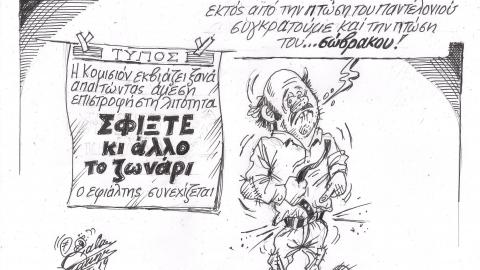 εκτός από την πτώση του παντελονιού
συγκρατούμε και την πτώση
του...σώβρακου!
ΤΥΠΟΣ
Η Κομισιόν εκβιάζει ξανά
απαιτώντας άμεση
επιστροφή στη λιτότητα
ΣΦΙΞΤΕ
κι άλλο
το ζωνάρι
ο εφιάλτης συνεχίζεται